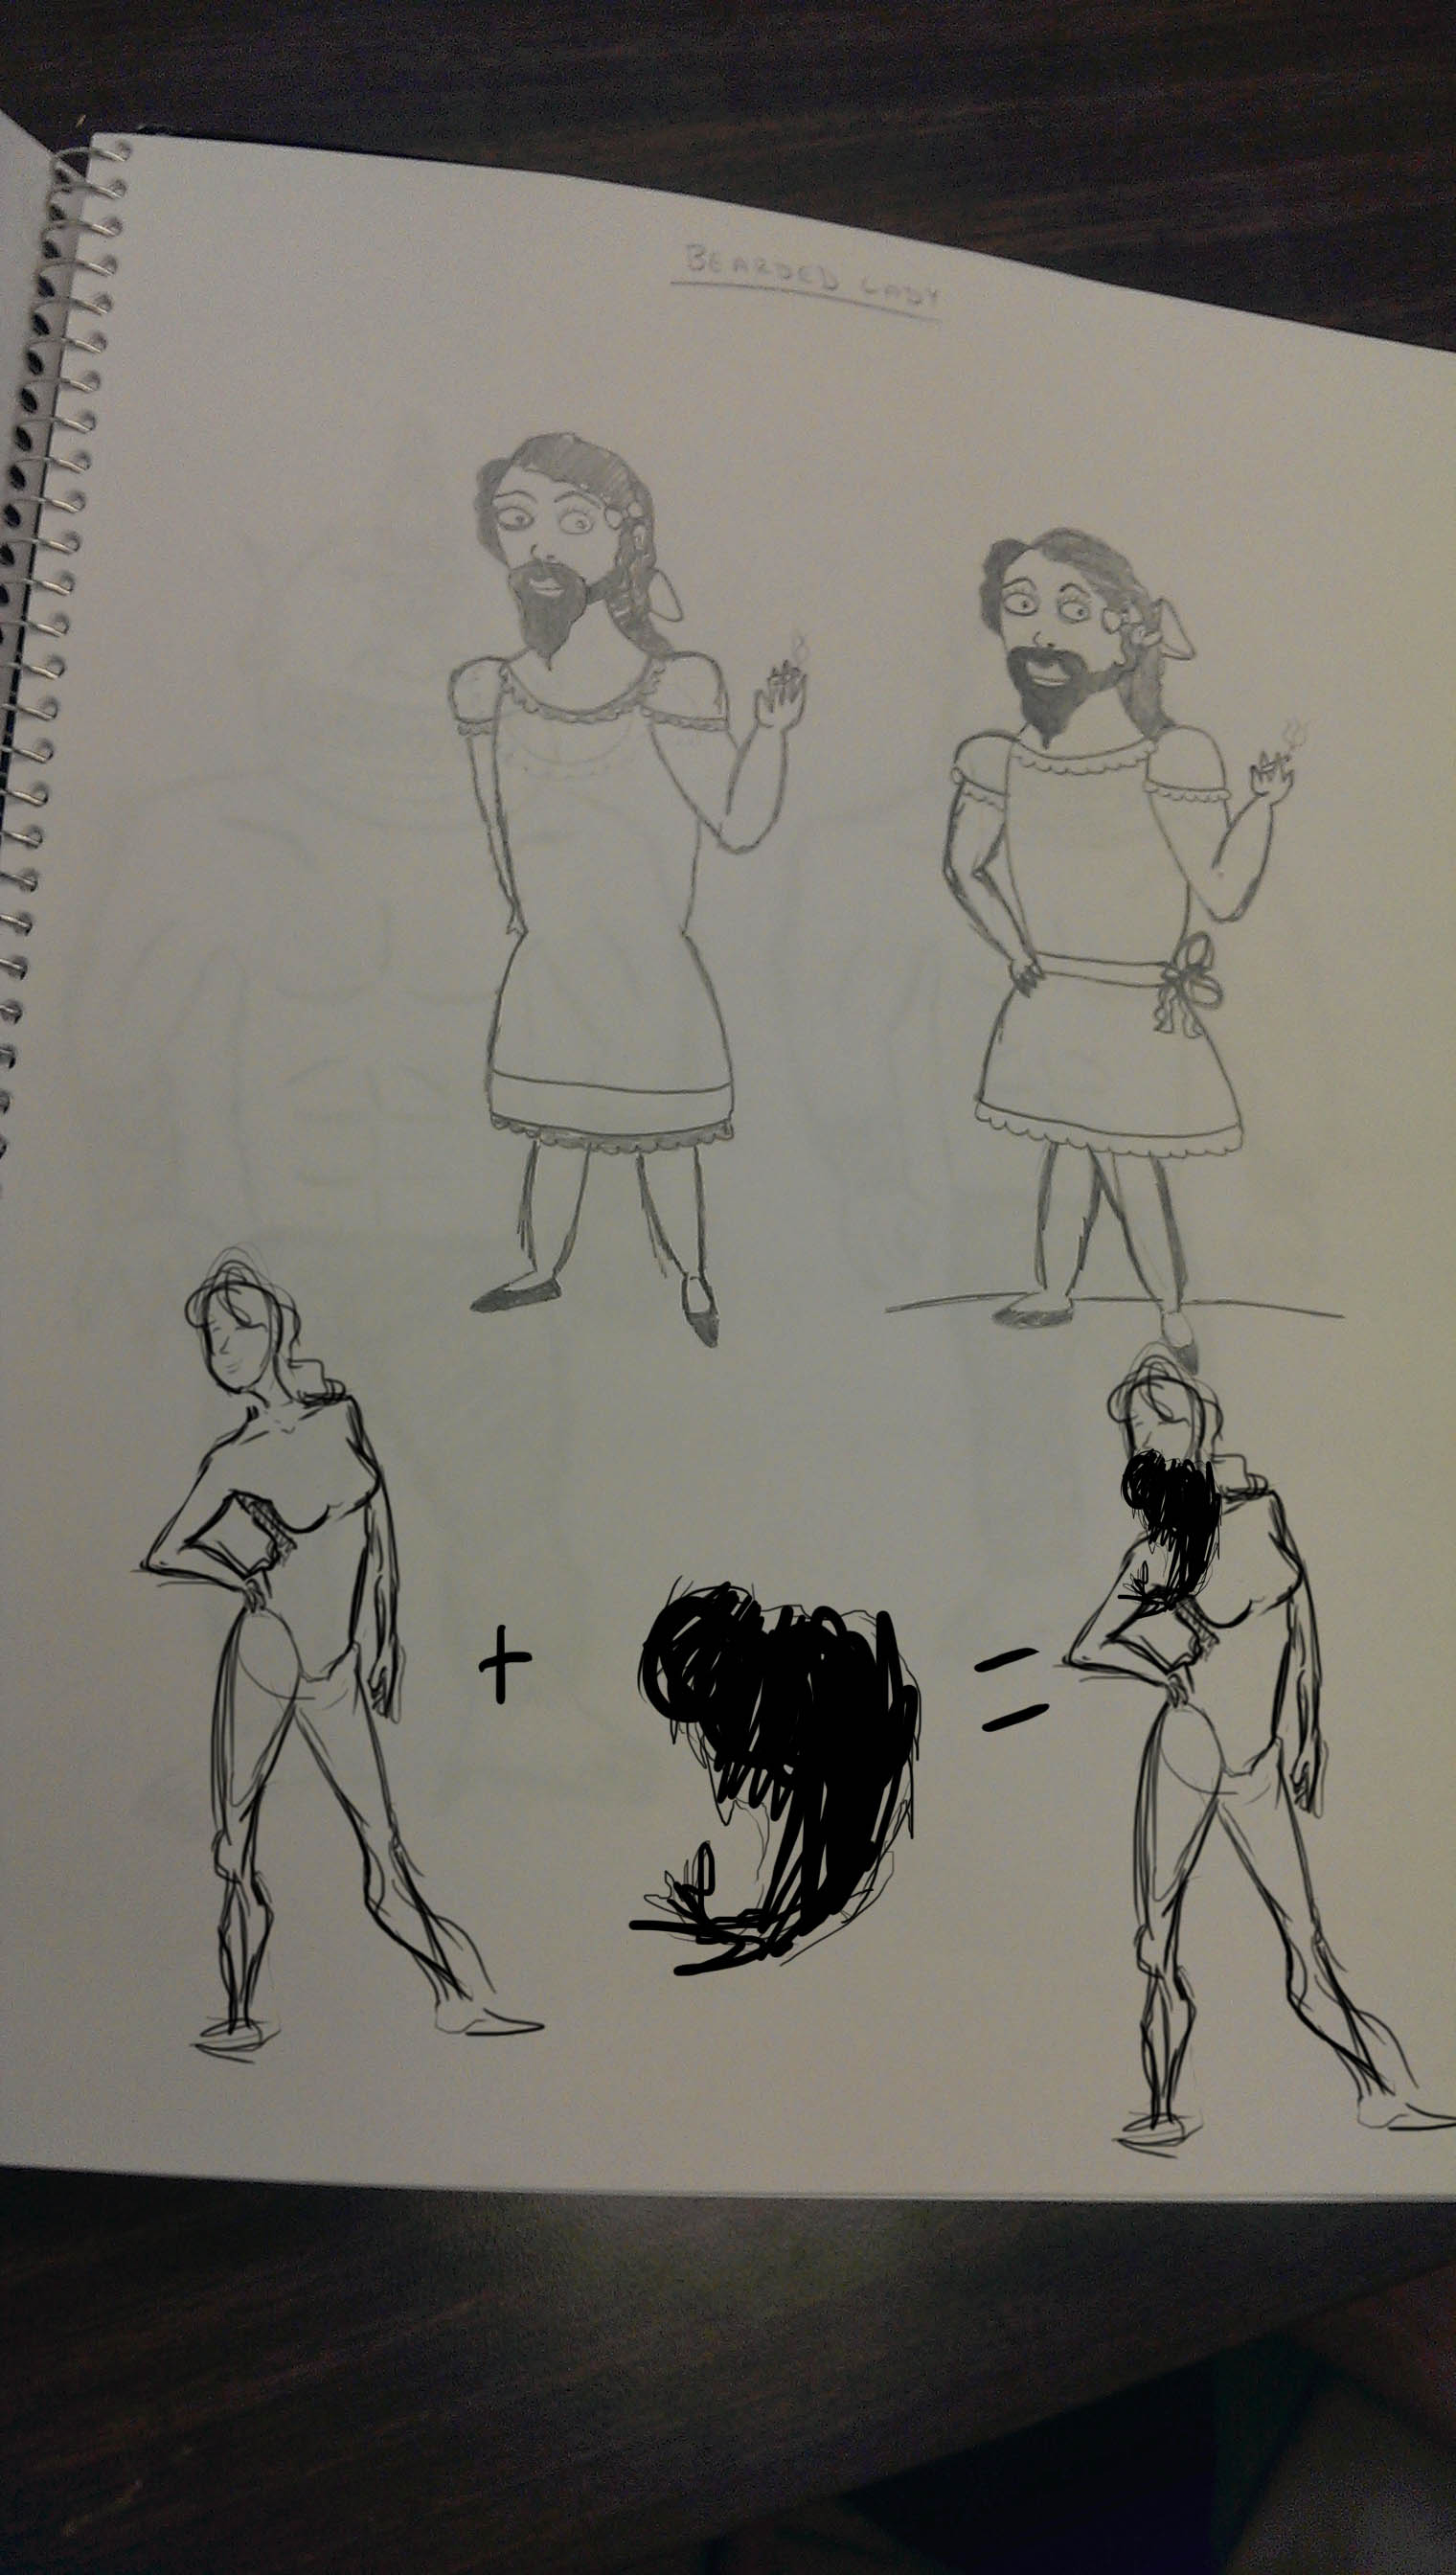 BEARDED LADY
+ =